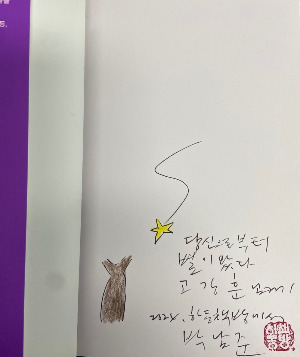 당신으로부터
별이 왔다
고강훈 님께
202x. 한들책방에서
박남준